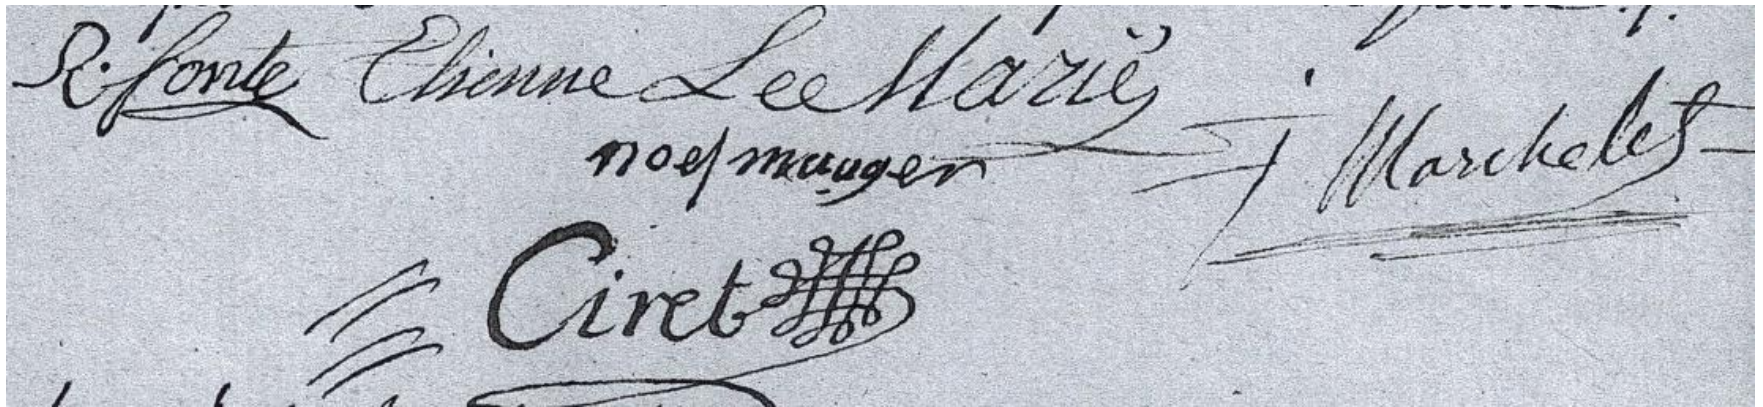 R. fonte Etienne Lee Marié
noel mauger j Marchelet
Ciret